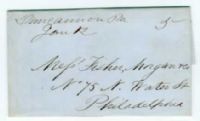 Duncannon Pa 5
Jan 12
Messrs Fisher, Morgan & Co
No 75 N. Water St
Philadelphia